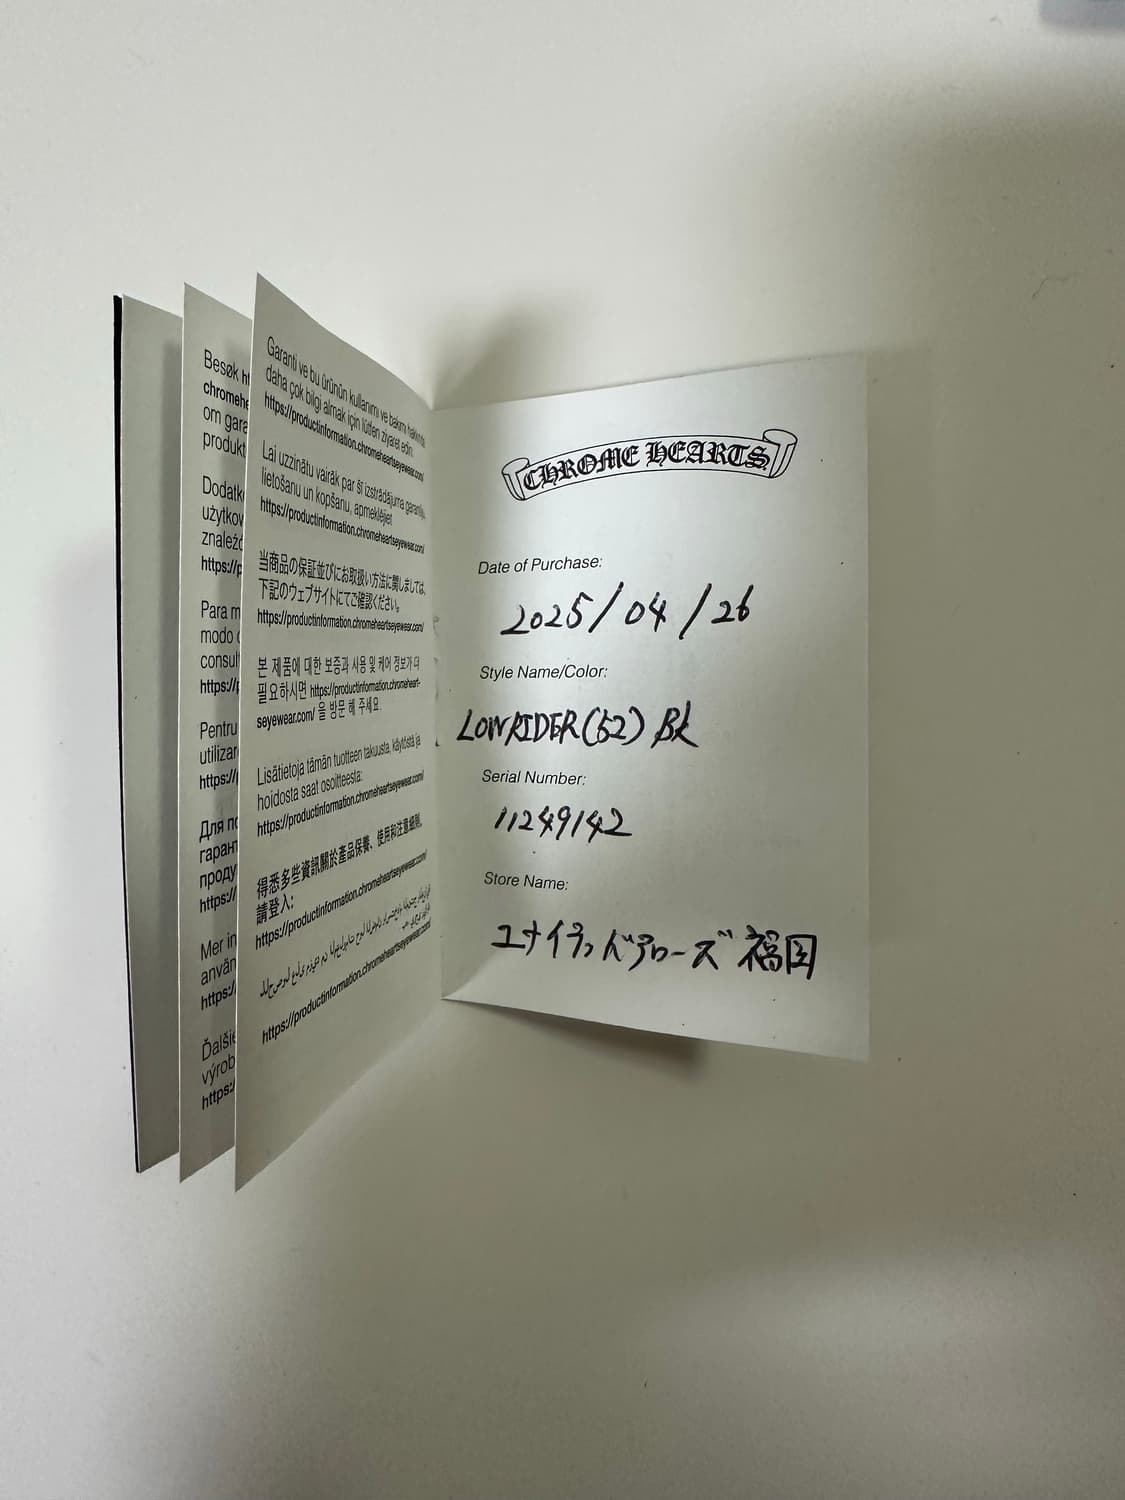 Besøk ht
chromehe
om gara
produkt
Dodatk
użytkov
znaleźć
https://p
Para m
modo c
consul
https://p
Pentru
utilizar
https://p
Для по
гарант
проду
https://
Mer in
använ
https:/
Ďalšie
výrob
https:/
Garanti ve bu ürünün kullanımı ve bakımı hakkında
daha çok bilgi almak için lütfen ziyaret edin:
https://productinformation.chromeheartseyewear.com/
Lai uzzinātu vairāk par šī izstrādājuma garantiju,
lietošanu un kopšanu, apmeklējiet
https://productinformation.chromeheartseyewear.com/
当商品の保証並びにお取扱い方法に関しましては、
下記のウェブサイトにてご確認ください。
https://productinformation.chromeheartseyewear.com/
본 제품에 대한 보증과 사용 및 케어 정보가 더
필요하시면 https://productinformation.chromeheart-
seyewear.com/ 을 방문 해 주세요.
Lisätietoja tämän tuotteen takuusta, käytöstä ja
hoidosta saat osoitteesta:
https://productinformation.chromeheartseyewear.com/
得悉多些資訊關於產品保養、使用和注意細則,
請登入:
https://productinformation.chromeheartseyewear.com/
https://productinformation.chromeheartseyewear.com/
CHROME HEARTS
Date of Purchase:
2025/04/26
Style Name/Color:
LOWRIDER(52) BK
Serial Number:
11249142
Store Name:
ユナイテッドアローズ 福岡